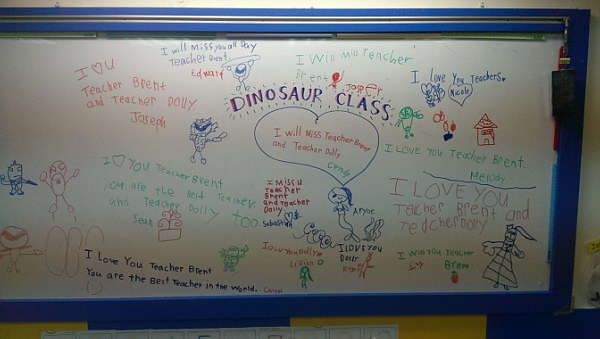 I will Miss you all Day
Teacher Brent
Edward
I Will Miss Teacher
Brent
Jasper
I love You Teachers.
Nicole
I ♡ U
Teacher Brent
and Teacher Dolly
Joseph
DINOSAUR CLASS
I will Miss Teacher Brent
and Teacher Dolly
Candy
I LOVE YOU Teacher Brent.
Melody
I ♡ YOU Teacher Brent
you are the best Teacher
and Teacher Dolly too
Sean
I Miss U
Teacher
Brent
and Teacher
Dolly.
Sebastian
I LOVE YOU
Teacher Brent and
Teacher Dolly
I Love You Dolly
Lilian
I LOVE YOU
Dolly
I Miss You Teacher
Brent
I Love You Teacher Brent
You are the Best Teacher in the World.